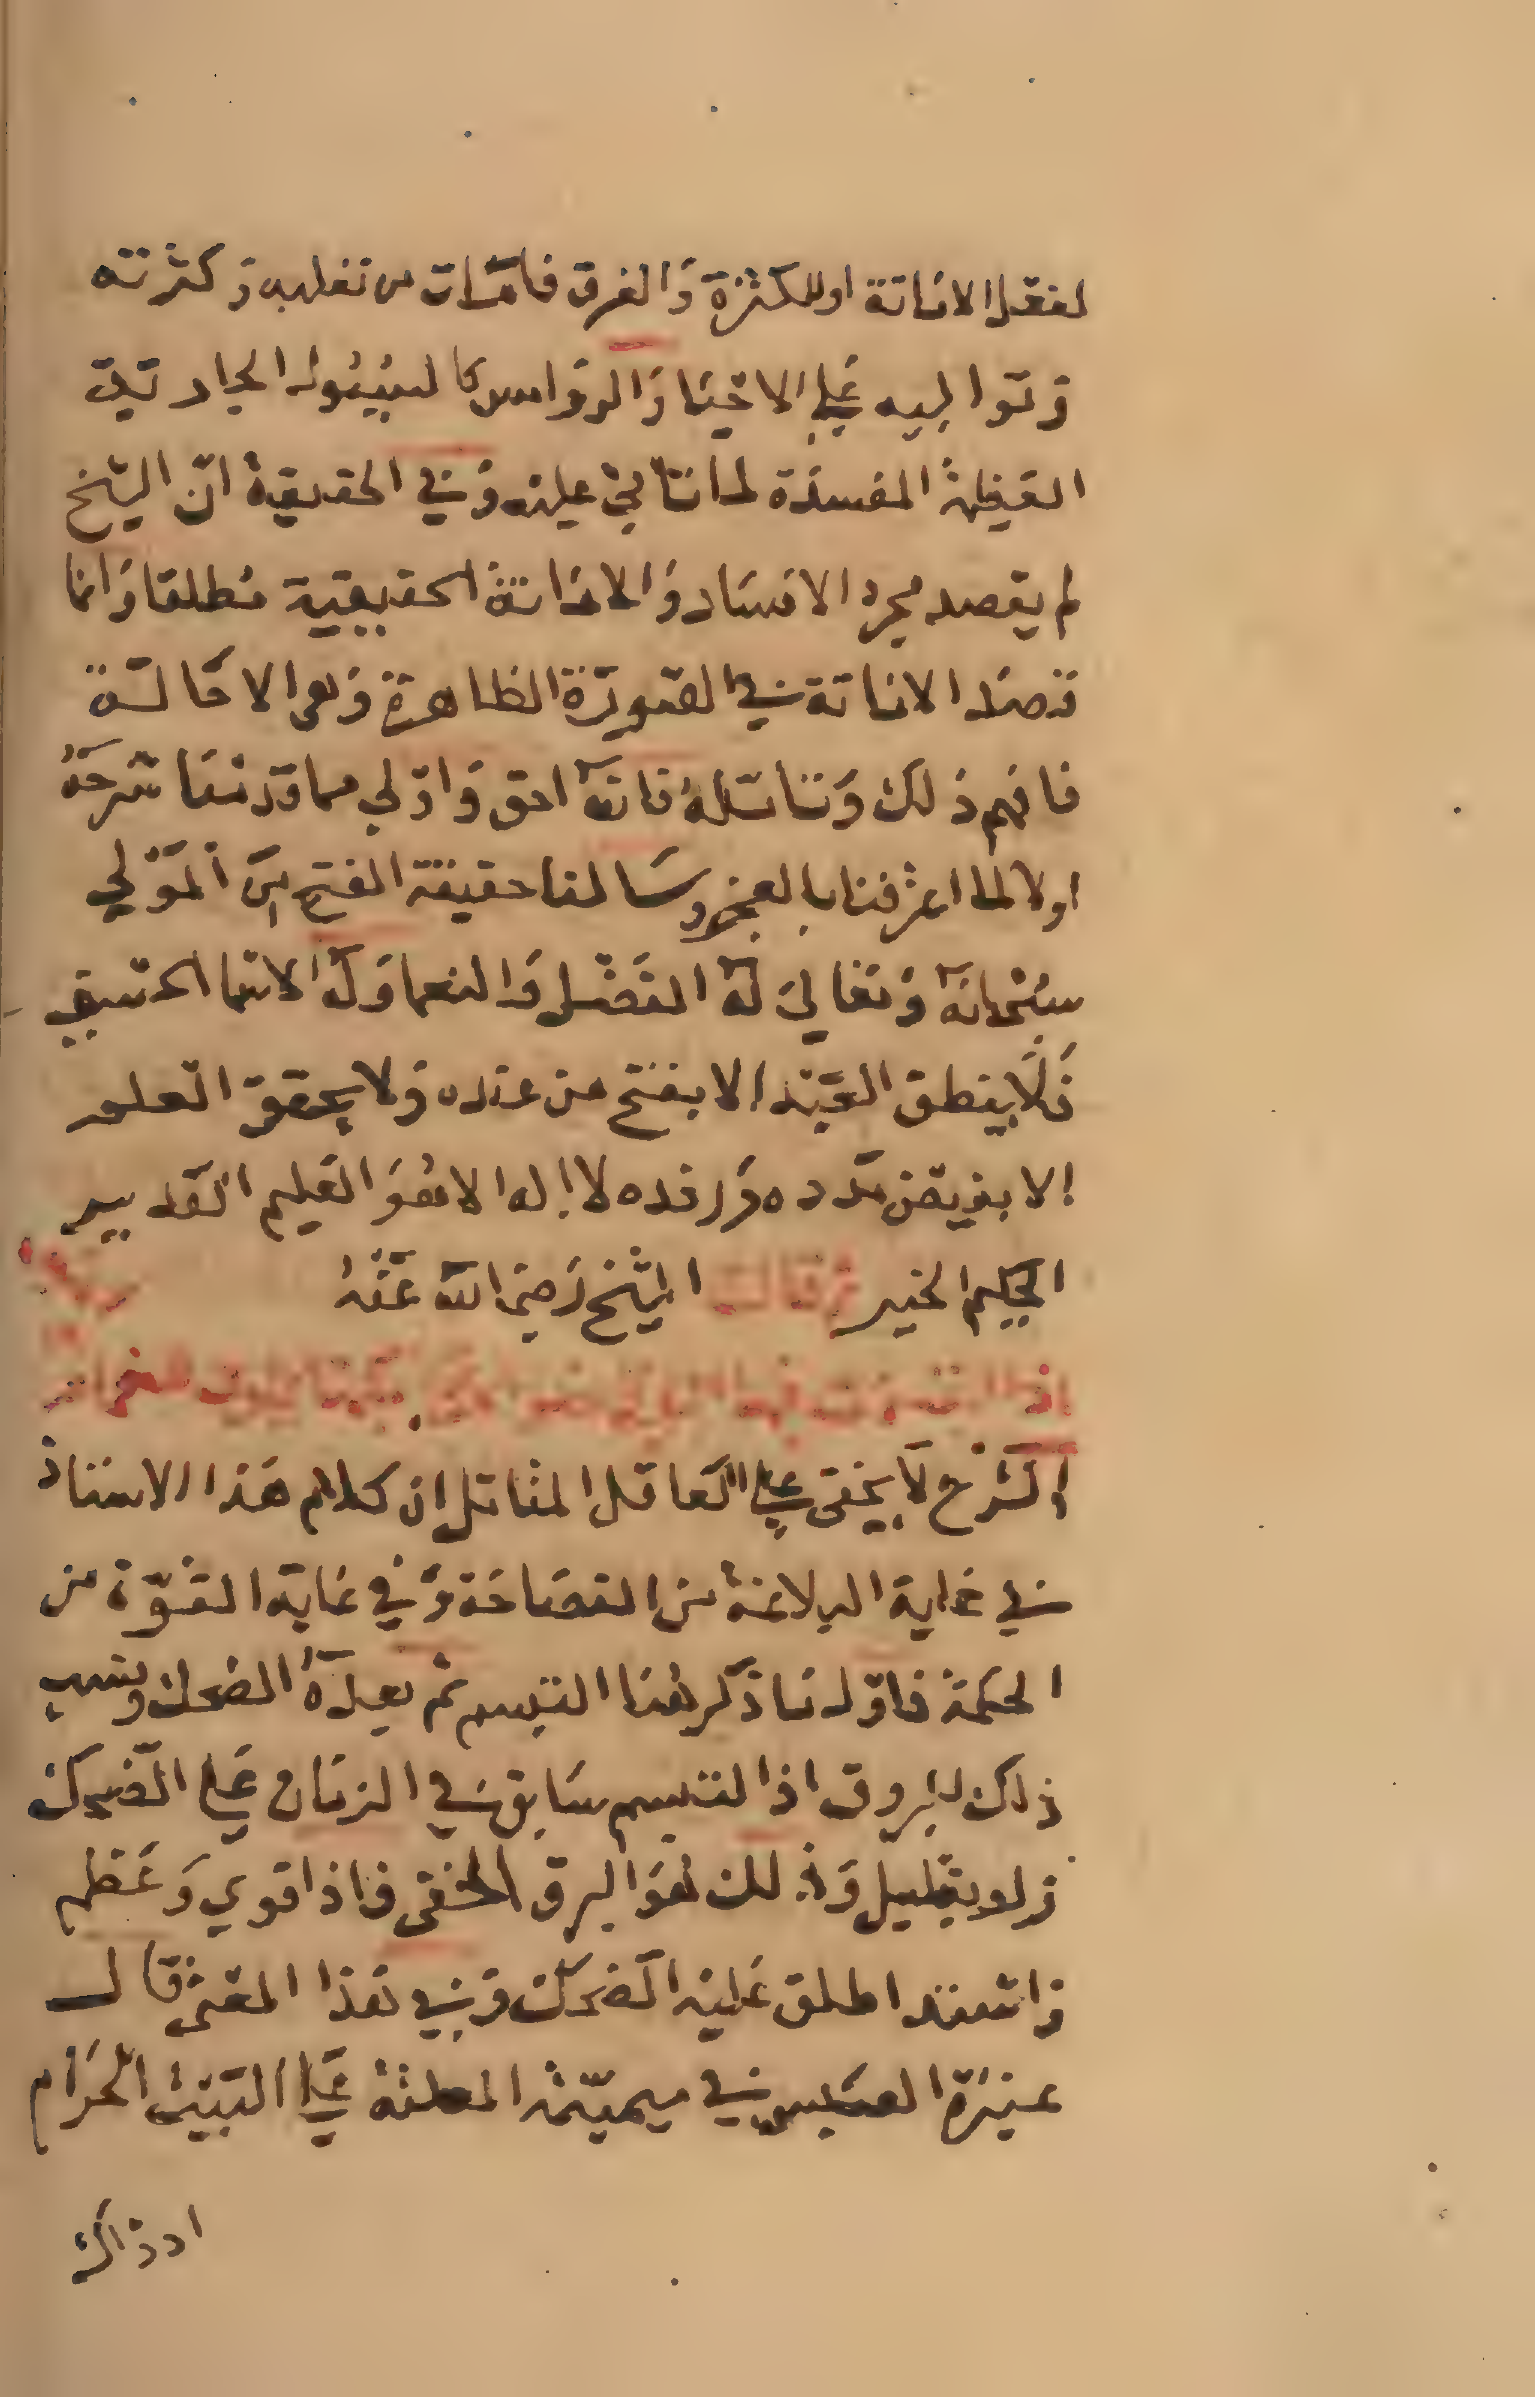 لفعل الاماتة او للكثرة والغرق فامات من تغلبه وكثرته
وتواليه على الاحيا والدواس كالسيول الجارية
القبيلة المفسدة لما تاتي عليه وفي الحقيقة ان الشيخ
لم يقصد مجرد الافساد والاماتة الحقيقية مطلقا وانما
قصد الاماتة في الصورة الظاهرة وهي الاحالة
فافهم ذلك وتامله فانه احق واولي مما قدمنا شرحه
اولا لما اعترفنا بالعجز وسالنا حقيقة الفتح من المولي
سبحانه وتعالي له الفضل والنعما وله الاسما الحسني
فلا ينطق العبد الا بفتح من عنده ولا يحقق العلم
الا بفيض مدده ورفده لا اله الا هو العليم القدير
الحكيم الخبير ثم قال الشيخ رضي الله عنه
اذا ابتسمت
الشرح لا يخفى على العاقل المتامل ان كلام هذا الاستاذ
في غاية البلاغة من الفصاحة وفي غاية القوة من
الحكمة فاول ما ذكر هنا التبسم ثم بعده الضحك ونسب
ذلك للبروق اذ التبسم سابق في الزمان على الضحك
ولو بقليل وذلك هو البرق الخفى فاذا قوي وعظم
واشتد اطلق عليه الضحك وفي هذا المعنى قال
عنترة العبسي في ميميته المعلقة على البيت الحرام
اذ ذاك